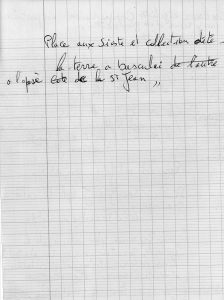 Place aux Siste et collection d'été
la terre a basculé de l'autre
a l'oposé Cote de la St Jean ,,